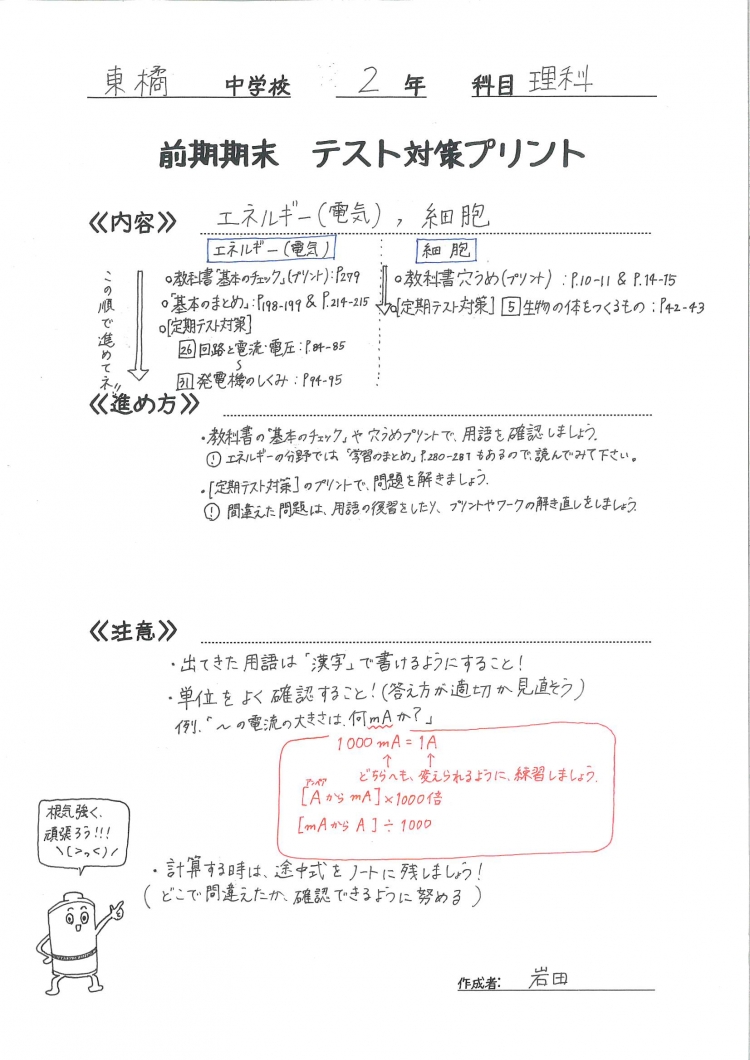 東橘 中学校 2 年 科目 理科
前期期末 テスト対策プリント
≪内容≫ エネルギー(電気), 細胞
エネルギー(電気)
この順で進めてネ!!
○教科書「基本のチェック」(プリント):P.279
○「基本のまとめ」:P.198-199 & P.214-215
○[定期テスト対策]
26 回路と電流・電圧:P.84-85
〜
31 発電機のしくみ:P.94-95
細胞
○教科書穴うめ(プリント):P.10-11 & P.14-15
○[定期テスト対策] 5 生物の体をつくるもの:P.42-43
≪進め方≫
・教科書の「基本のチェック」や穴うめプリントで、用語を確認しましょう。
! エネルギーの分野では「学習のまとめ」P.280-281もあるので、読んでみて下さい。
・[定期テスト対策]のプリントで、問題を解きましょう。
! 間違えた問題は、用語の復習をしたり、プリントやワークの解き直しをしましょう。
≪注意≫
・出てきた用語は「漢字」で書けるようにすること!
・単位をよく確認すること!(答え方が適切か見直そう)
例.「〜の電流の大きさは、何mAか?」
1000mA=1A
↑ ↑
どちらへも、変えられるように、練習しましょう。
アンペア
[AからmA]×1000倍
[mAからA]÷1000
根気強く、
頑張ろう!!!
\(>っ<)/
・計算する時は、途中式をノートに残しましょう!
(どこで間違えたか、確認できるように努める)
作成者: 岩田